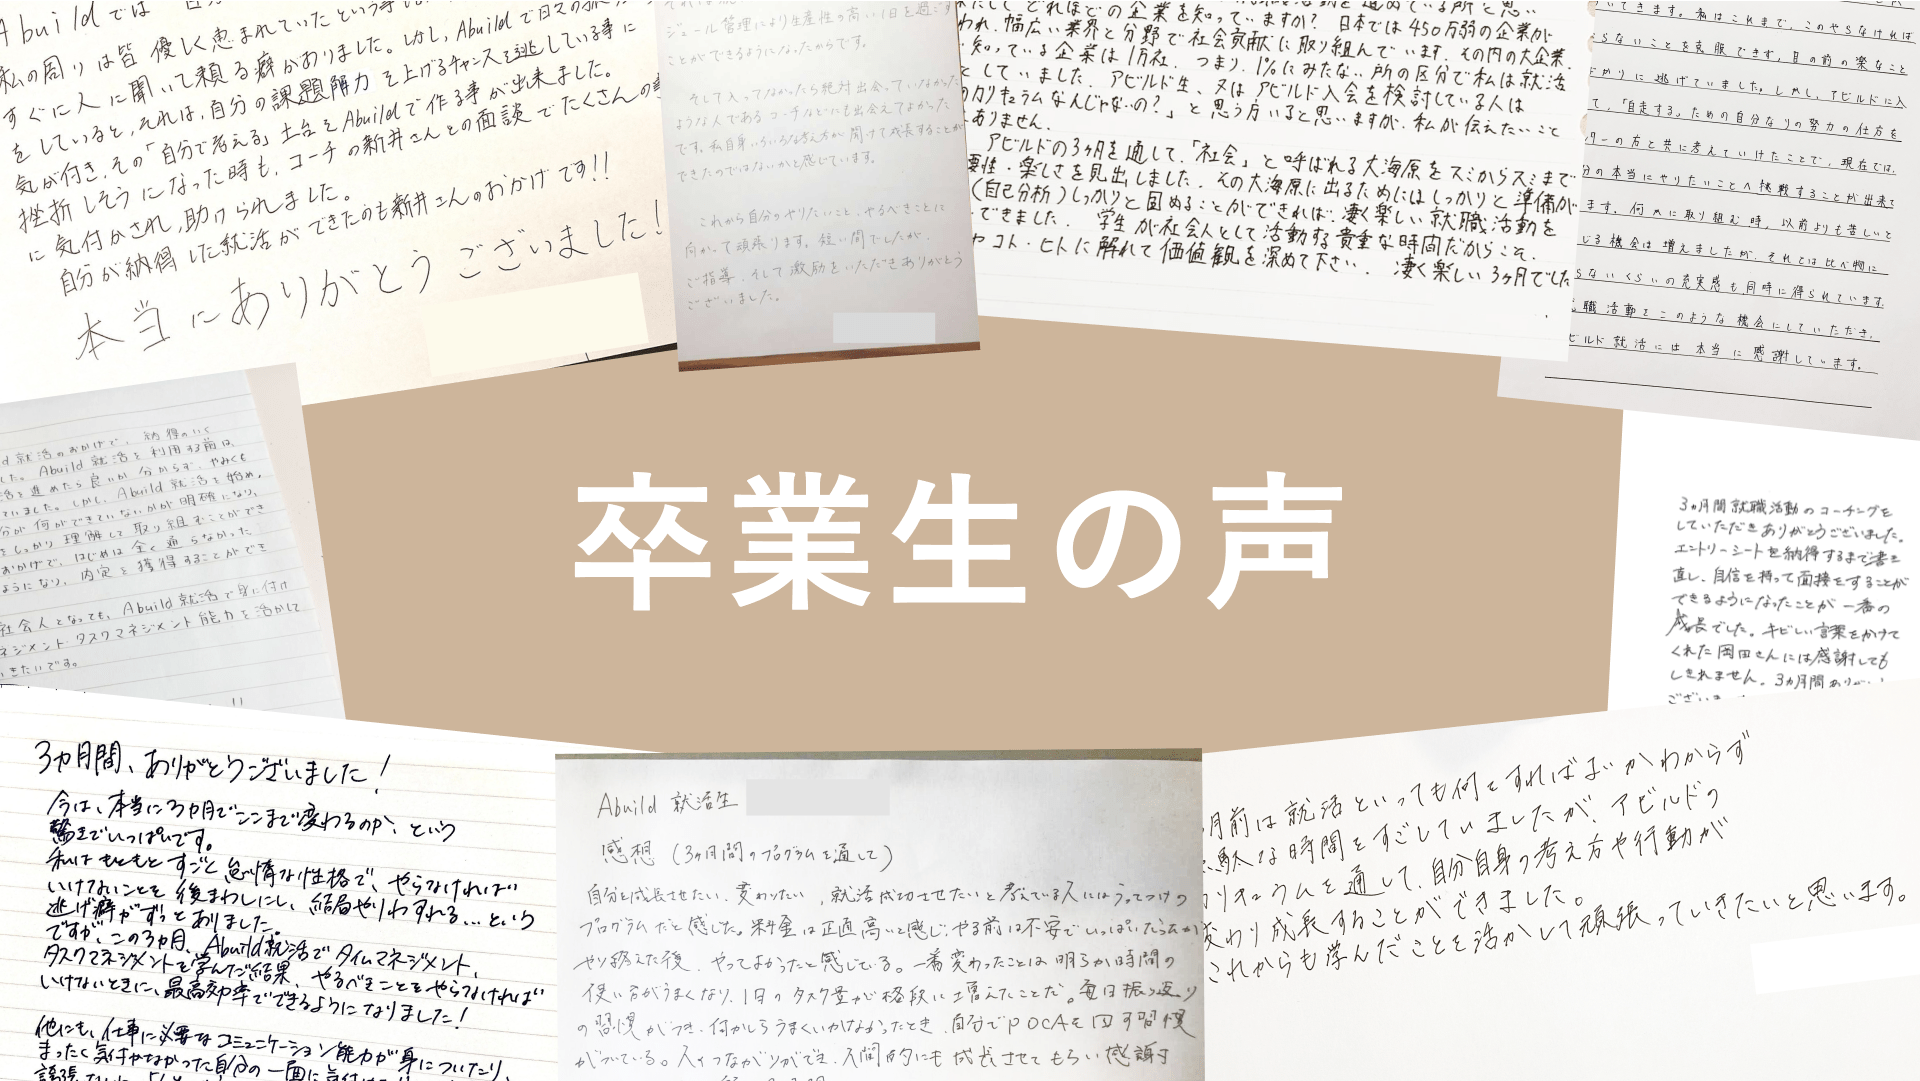 Abuildでは
私の周りは皆優しく恵まれていたという事
すぐに人に聞いて頼る癖がありました。しかし、Abuildで日々の
をしていると、それは、自分の課題解決力を上げるチャンスを逃している事に
気が付き、その「自分で考える」土台をAbuildで作る事が出来ました。
挫折しそうになった時も、コーチの新井さんとの面談でたくさんの事
に気付かされ、助けられました。
自分が納得した就活ができたのも新井さんのおかげです!!
本当にありがとうございました!
ジュール管理により生産性の高い1日を過ごす
ことができるようになったからです。
そして入ってなかったら絶対出会っていなかった
ような人であるコーチなどにも出会えてよかった
です。私自身いろいろな考え方が聞けて成長することが
できたのではないかと感じています。
これから自分のやりたいこと、やるべきことに
向かって頑張ります。短い間でしたが、
ご指導、そして激励をいただきありがとう
ございました。
どれほどの企業を知っていますか? 日本では450万弱の企業が
われ、幅広い業界と分野で社会貢献に取り組んでいます。その内の大企業、
知っている企業は1万社、つまり、1%にみたない所の区分で私は就活
としていました。アビルド生、又はアビルド入会を検討している人は
のカリキュラムなんじゃないの?」と思う方いると思いますが、私が伝えたいこと
ありません。
アビルドの3ヶ月を通して、「社会」と呼ばれる大海原をスミからスミまで
要性・楽しさを見出しました。その大海原に出るためにはしっかりと準備が
(自己分析)しっかりと固めることができれば、凄く楽しい就職活動を
できました。学生が社会人として活動する貴重な時間だからこそ、
コト・ヒトに触れて価値観を深めて下さい。凄く楽しい3ヶ月でした
いてきます。私はこれまで、このやらなければ
らないことを克服できず、目の前の楽なこと
ばかりに逃げていました。しかし、アビルドに入
て、「自走する」ための自分なりの努力の仕方を
ターの方と共に考えていけたことで、現在では、
分の本当にやりたいことへ挑戦することが出来て
ます。何かに取り組む時、以前よりも苦しいと
じる機会は増えましたが、それとは比べ物に
らないくらいの充実感も同時に得られています。
職活動をこのような機会にしていただき、
ビルド就活には本当に感謝しています。
d就活のおかげで、納得のいく
した。Abuild就活を利用する前は、
活を進めたら良いか分からず、やみくも
ていました。しかし、Abuild就活を始め、
分が何ができていないかが明確になり、
をしっかり理解して取り組むことができ
おかげで、はじめは全く通らなかった
ようになり、内定を獲得することができ
社会人となっても、Abuild就活で身に付け
ネジメント、タスクマネジメント能力を活かして
いきたいです。
卒業生の声
3ヵ月間就職活動のコーチングを
していただきありがとうございました。
エントリーシートを納得するまで書き
直し、自信を持って面接をすることが
できるようになったことが一番の
成長でした。キビしい言葉をかけて
くれた岡田さんには感謝しても
しきれません。3ヵ月間ありがとう
3ヵ月間、ありがとうございました!
今は、本当に3ヵ月でここまで変わるのか、という
驚きでいっぱいです。
私はもともとすごく怠惰な性格で、やらなければ
いけないことを後まわしにし、結局やりわすれる...という
逃げ癖がずっとありました。
ですが、この3ヵ月、Abuild就活でタイムマネジメント、
タスクマネジメントを学んだ結果、やるべきことをやらなければ
いけないときに、最高効率でできるようになりました!
他にも、仕事に必要なコミュニケーション能力が身についたり、
まったく気付かなかった自分の一面に気付けた
Abuild就活生
感想(3ヶ月間のプログラムを通して)
自分を成長させたい、変わりたい、就活成功させたいと考えている人にはうってつけの
プログラムだと感じた。料金は正直高いと感じ、やる前は不安でいっぱいだったが
やり終えた後、やってよかったと感じている。一番変わったことは明らか時間の
使い方がうまくなり、1日のタスク量が格段に増えたことだ。毎日振り返り
の習慣がつき、何かしらうまくいかなかったとき、自分でPDCAを回す習慣
がついている。人とつながりができ、人間的にも成長させてもらい感謝
月前は就活といっても何をすればよいかわからず
無駄な時間をすごしていましたが、アビルドの
カリキュラムを通して、自分自身の考え方や行動が
変わり成長することができました。
これからも学んだことを活かして頑張っていきたいと思います。